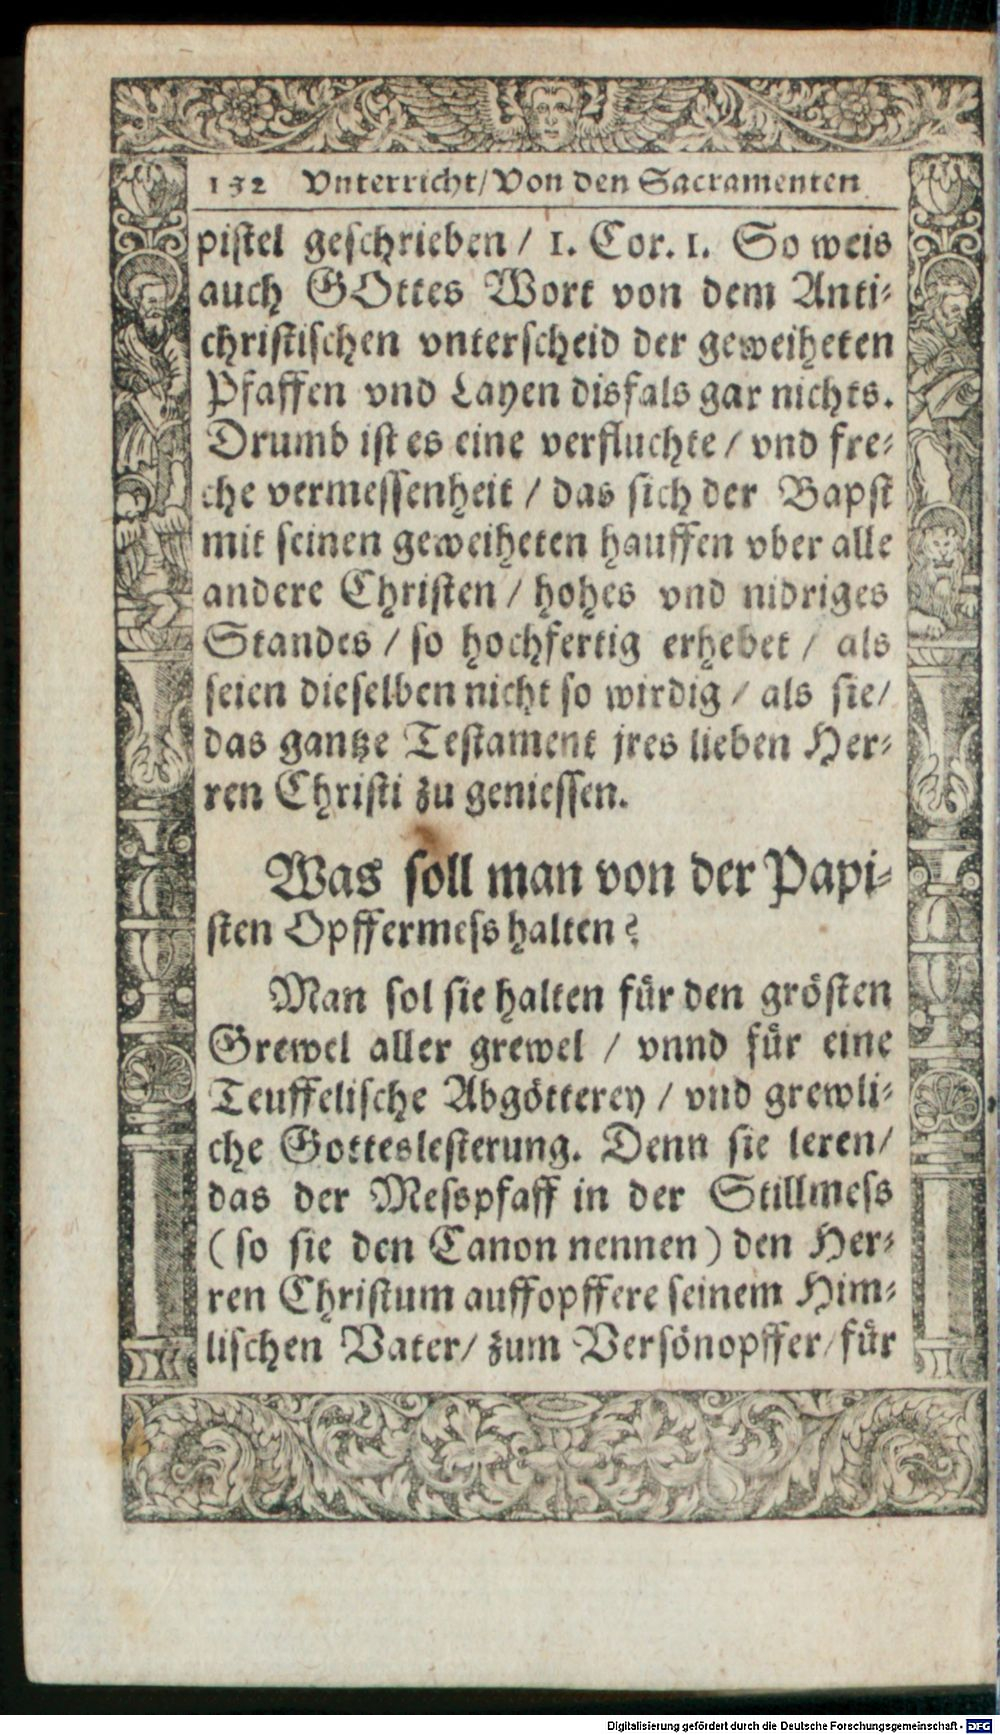 132 Vnterricht/Von den Sacramenten
pistel geschrieben / 1. Cor. 1. So weis
auch GOttes Wort von dem Anti-
christischen vnterscheid der geweiheten
Pfaffen vnd Layen disfals gar nichts.
Drumb ist es eine verfluchte / vnd fre-
che vermessenheit / das sich der Bapst
mit seinen geweiheten hauffen vber alle
andere Christen / hohes vnd nidriges
Standes / so hochfertig erhebet / als
seien dieselben nicht so wirdig / als sie/
das gantze Testament jres lieben Her-
ren Christi zu geniessen.
Was soll man von der Papi-
sten Opffermess halten?
Man sol sie halten für den grösten
Grewel aller grewel / vnnd für eine
Teuffelische Abgötterey / vnd grewli-
che Gotteslesterung. Denn sie leren/
das der Messpfaff in der Stillmess
(so sie den Canon nennen) den Her-
ren Christum auffopffere seinem Him-
lischen Vater/ zum Versönopffer/ für
Digitalisierung gefördert durch die Deutsche Forschungsgemeinschaft - DFG